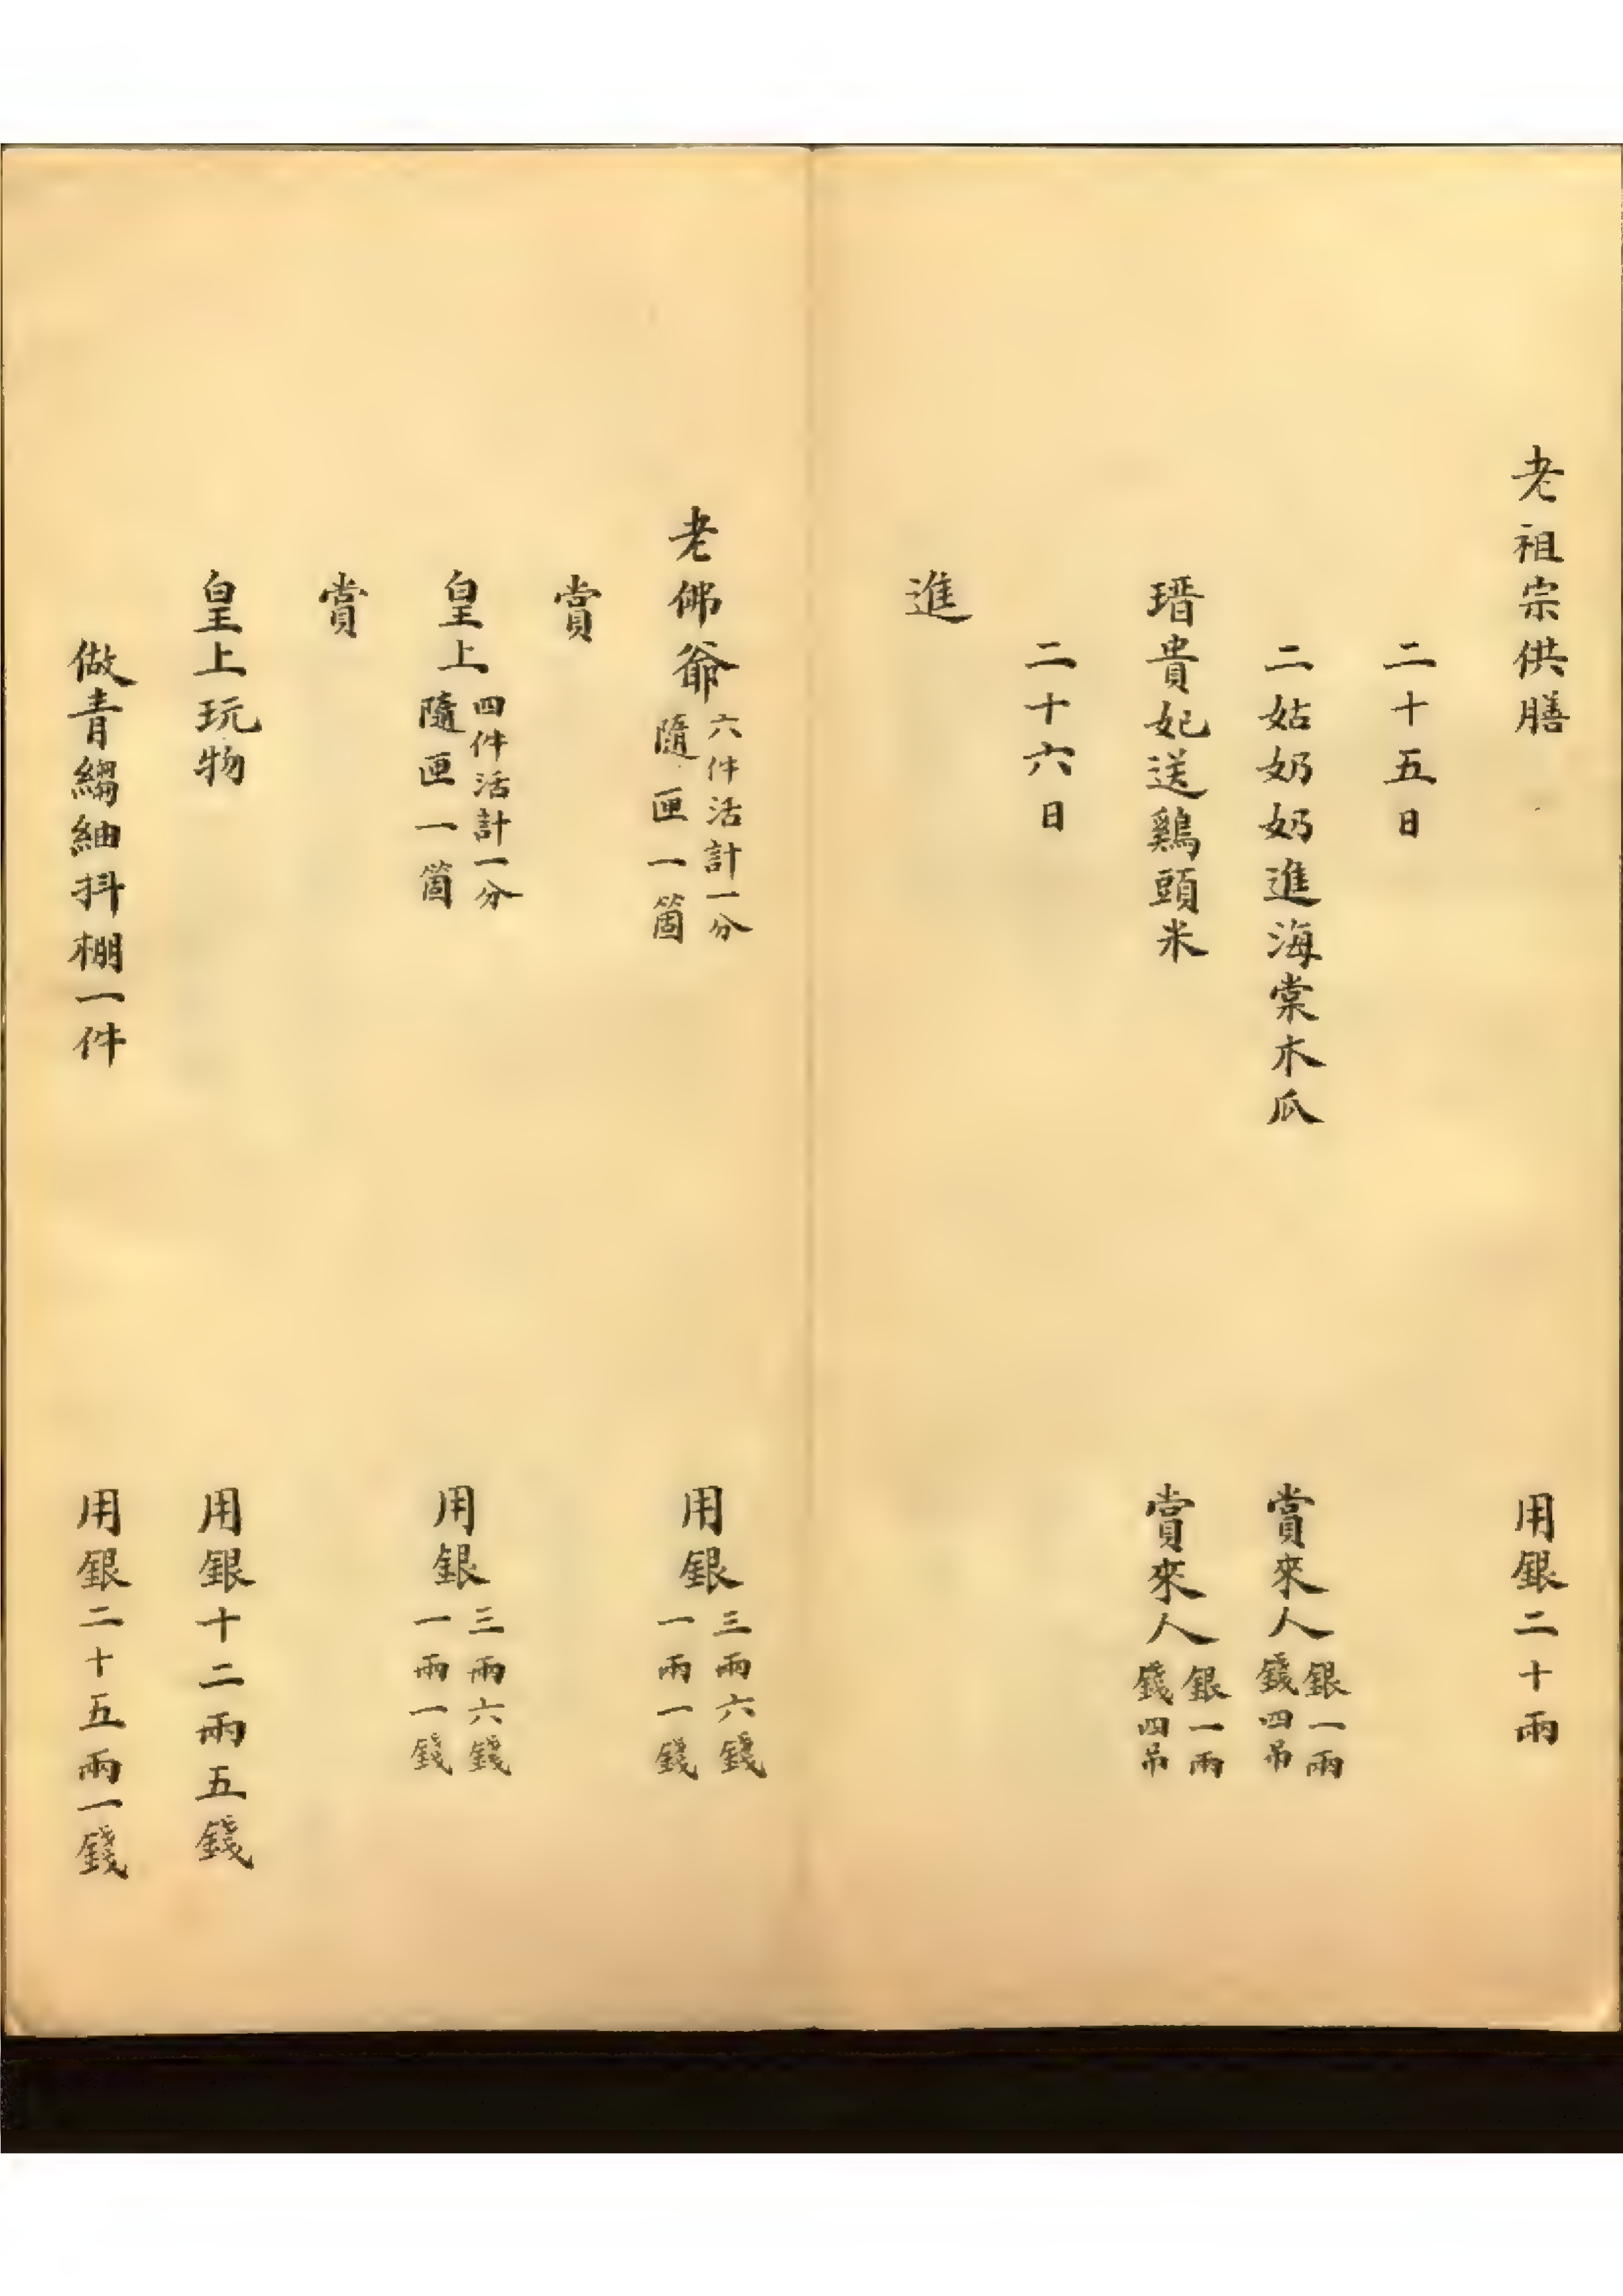 老祖宗供膳　用銀二十兩
二十五日
二姑奶奶進海棠木瓜　賞來人銀一兩錢四吊
瑨貴妃送鷄頭米　賞來人銀一兩錢四吊
二十六日
進
老佛爺六件活計一分隨匣一箇　用銀三兩六錢一兩一錢
賞
皇上四件活計一分隨匣一箇　用銀三兩六錢一兩一錢
賞
皇上玩物　用銀十二兩五錢
做青縐紬抖棚一件　用銀二十五兩一錢